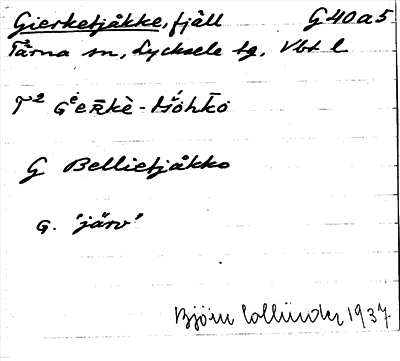 Gierketjåkke, fjäll G 40 a 5
Tärna sn, Lycksele lg, Vbt l
T² Gi̇eR̄kè-tśi̮óhk̄o
G Bellietjåkko
G. 'järv'
Björn Collinder 1937